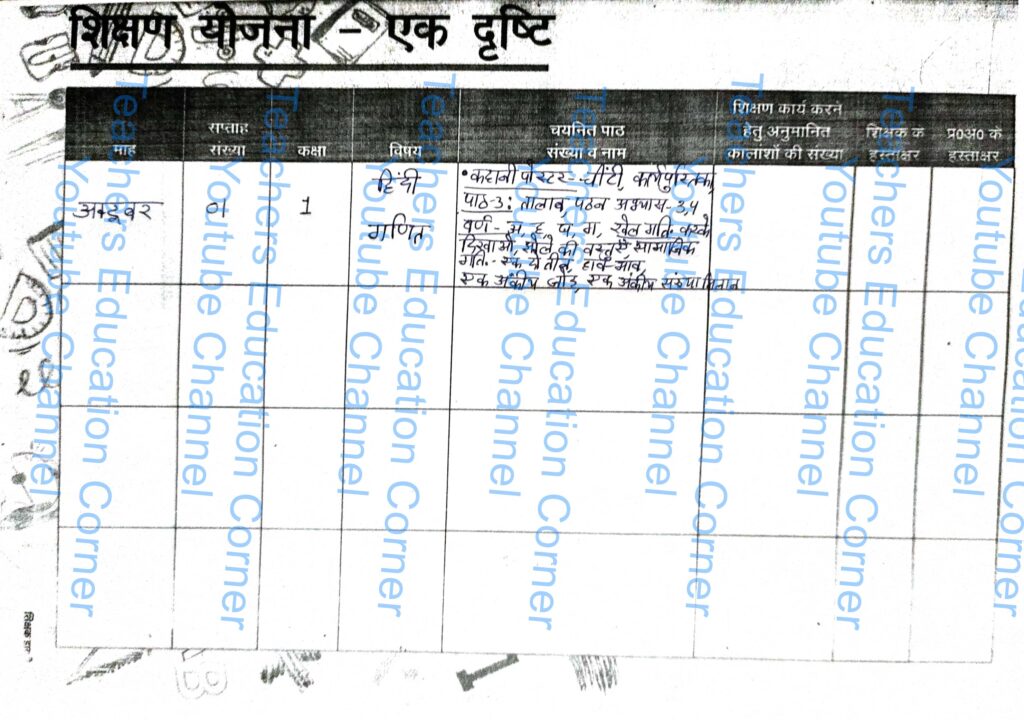 शिक्षण योजना – एक दृष्टि
माह
सप्ताह
संख्या
कक्षा
विषय
चयनित पाठ
संख्या व नाम
शिक्षण कार्य करने
हेतु अनुमानित
कालांशों की संख्या
शिक्षक के
हस्ताक्षर
प्र०अ० के
हस्ताक्षर
अक्टूबर
01
1
हिंदी
गणित
• कहानी पोस्टर - चींटी, कार्यपुस्तिका
पाठ-3: तालाब, पठन अभ्यास- 3,4
वर्ण - अ, ह, प, म, खेल गति करके
दिखाओ, खेल की वस्तुएँ
गति - एक दो तीन, हाव-भाव,
एक अंकीय जोड़, एक अंकीय संख्या मिलान
Teachers Education Corner
Youtube Channel
Teachers Education Corner
Youtube Channel
Teachers Education Corner
Youtube Channel
Teachers Education Corner
Youtube Channel
Teachers Education Corner
Youtube Channel
Teachers Education Corner